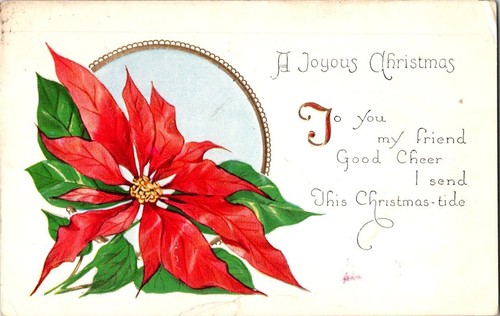 A Joyous Christmas
To you
my friend
Good Cheer
I send
This Christmas-tide